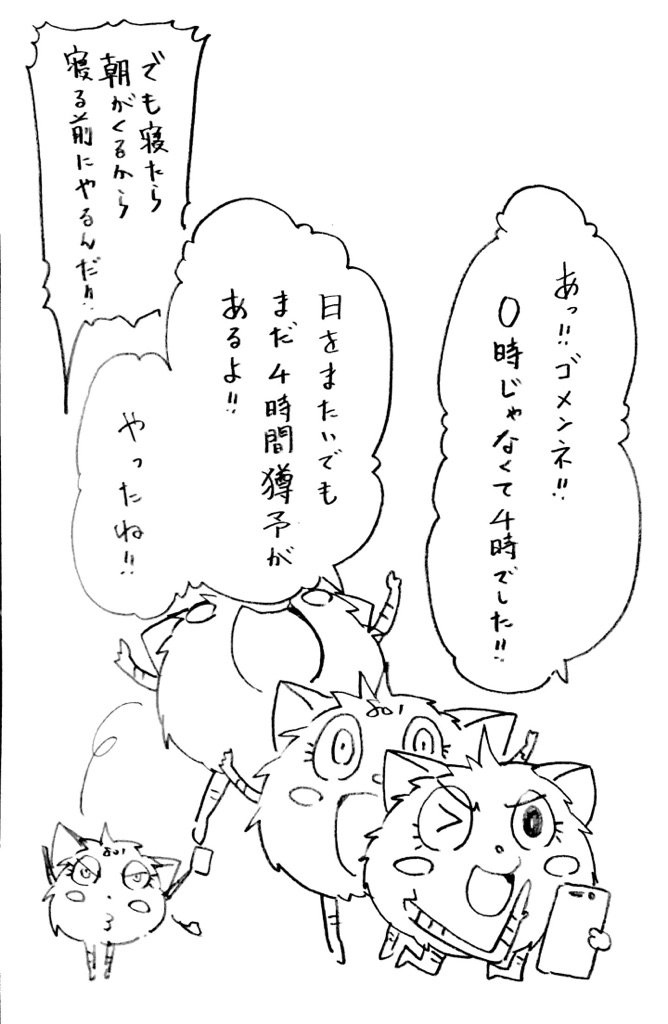 あっ!!ゴメンネ!!
0時じゃなくて4時でした!!
日をまたいでも
まだ4時間猶予が
あるよ!!
やったね!!
でも寝たら
朝がくるから
寝る前にやるんだ!!